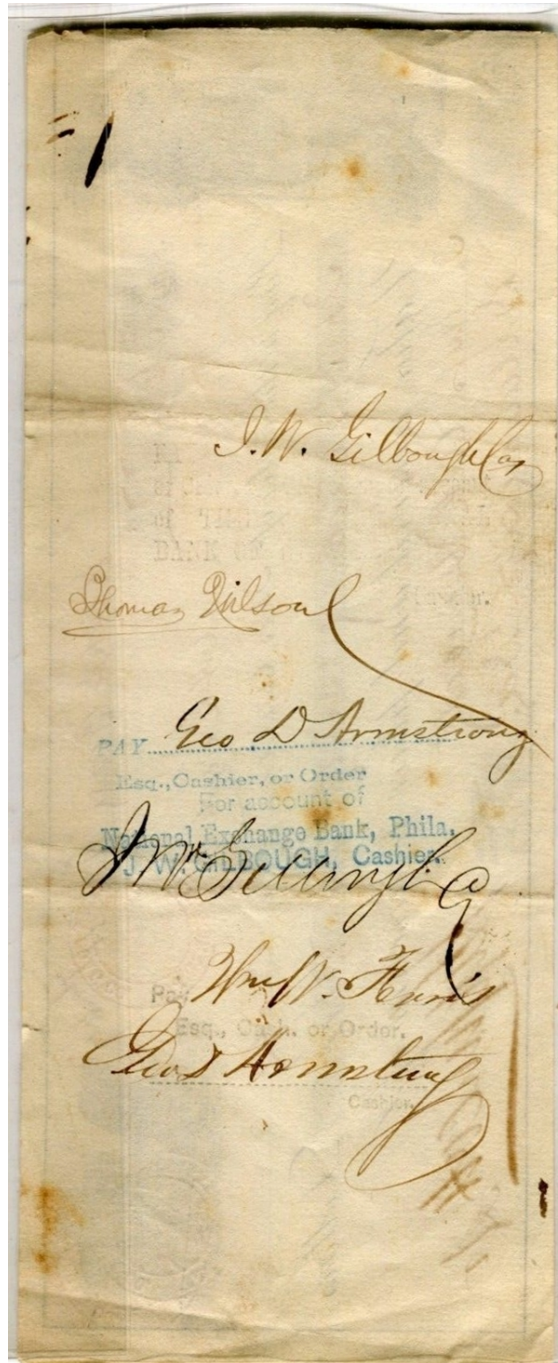 J. W. Gilbough Cas
Thomas Wilson
PAY Geo D Armstrong
Esq., Cashier, or Order
For account of
National Exchange Bank, Phila.
J. W. GILBOUGH, Cashier.
J W Gilbough Cas
Pay Wm W. Ferris
Esq., Cash. or Order.
Geo D Armstrong
Cashier